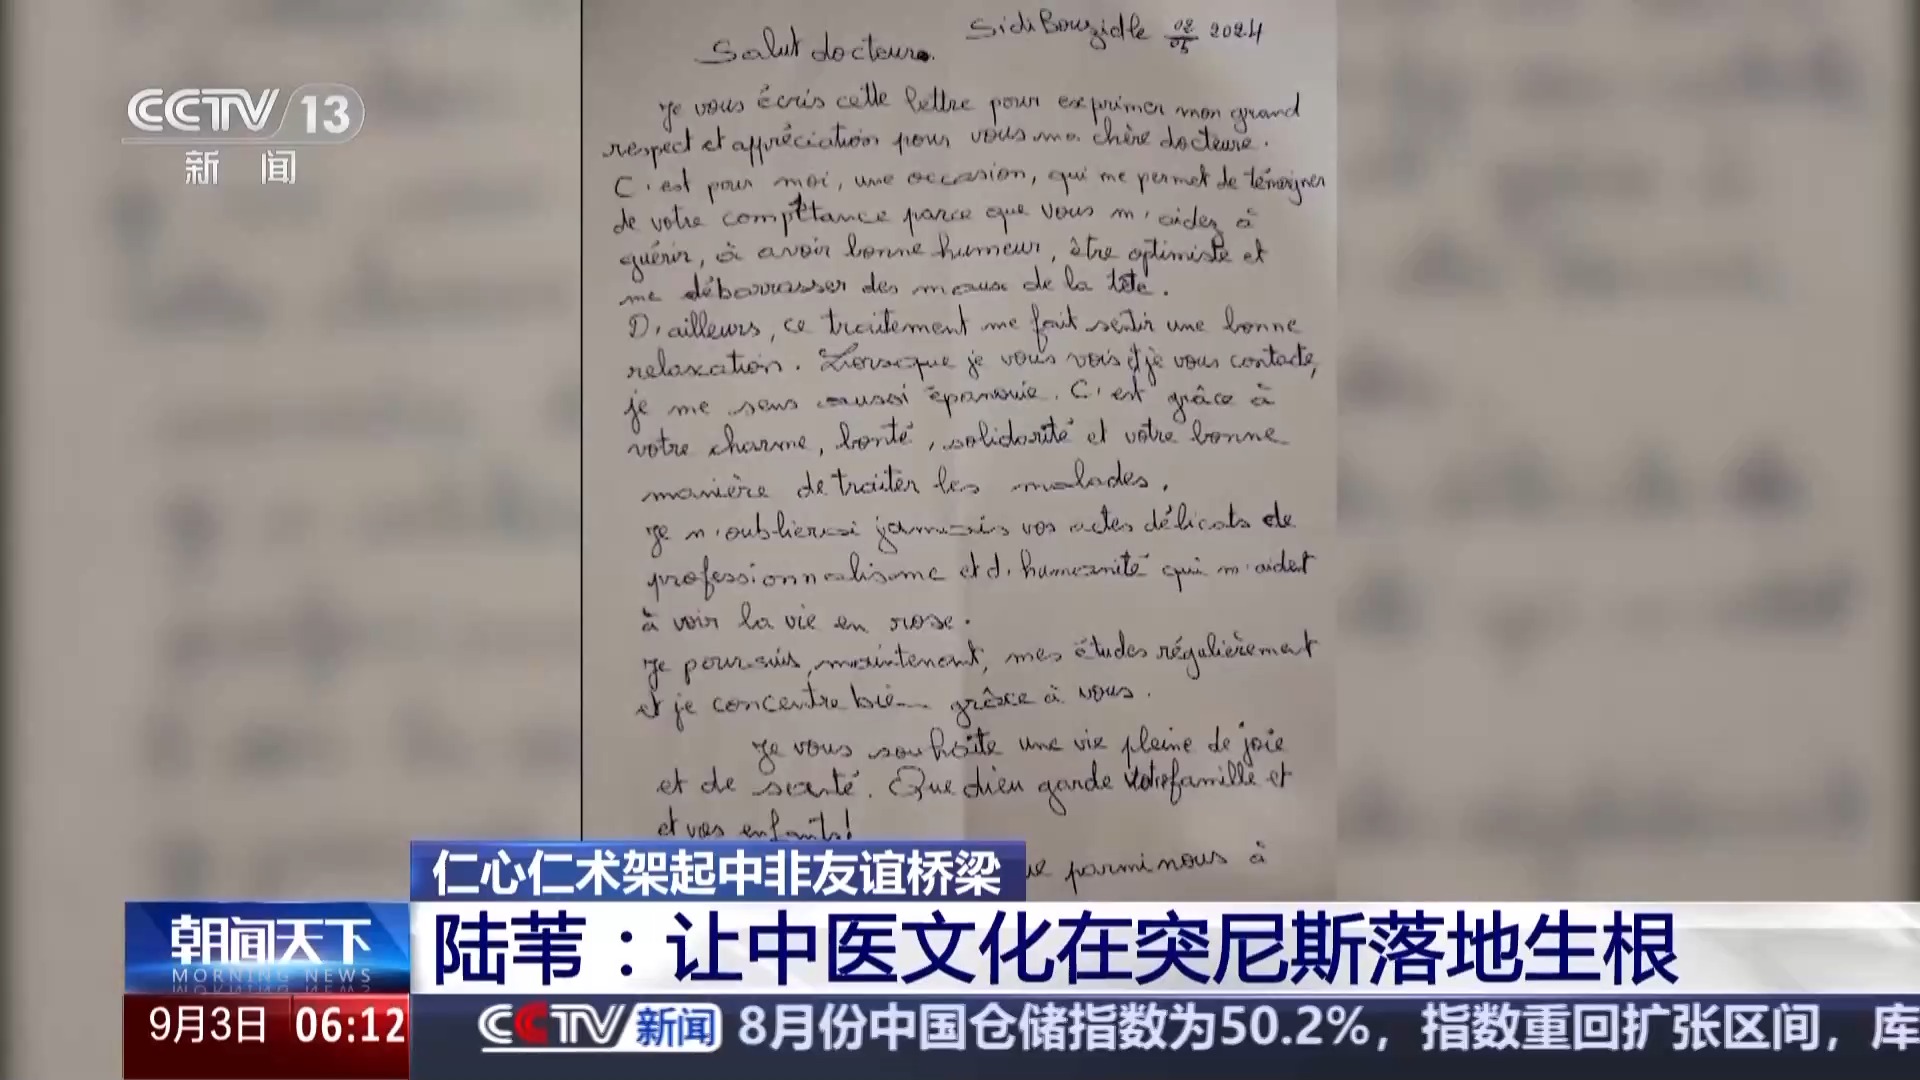 Sidi Bouzid le 02/05 2024
Salut docteur.
Je vous écris cette lettre pour exprimer mon grand
respect et appréciation pour vous ma chère docteure.
C'est pour moi, une occasion, qui me permet de témoigner
de votre compétance parce que vous m'aidez à
guérir, à avoir bonne humeur, être optimiste et
me débarrasser des maux de la tête.
D'ailleurs, ce traitement me fait sentir une bonne
relaxation. Lorsque je vous vois et je vous contacte,
je me sens aussi épanouie. C'est grâce à
votre charme, bonté, solidarité et votre bonne
manière de traiter les malades.
Je n'oublierai jamais vos actes délicats de
professionnalisme et d'humanité qui m'aident
à voir la vie en rose.
Je poursuis, maintenant, mes études régulièrement
et je concentre bien grâce à vous.
Je vous souhaite une vie pleine de joie
et de santé. Que dieu garde votre famille et
et vos enfants!
parmi nous à
CCTV 13
新闻
仁心仁术架起中非友谊桥梁
陆苇：让中医文化在突尼斯落地生根
朝闻天下
MORNING NEWS
9月3日 06:12
CCTV 新闻 8月份中国仓储指数为50.2%，指数重回扩张区间，库